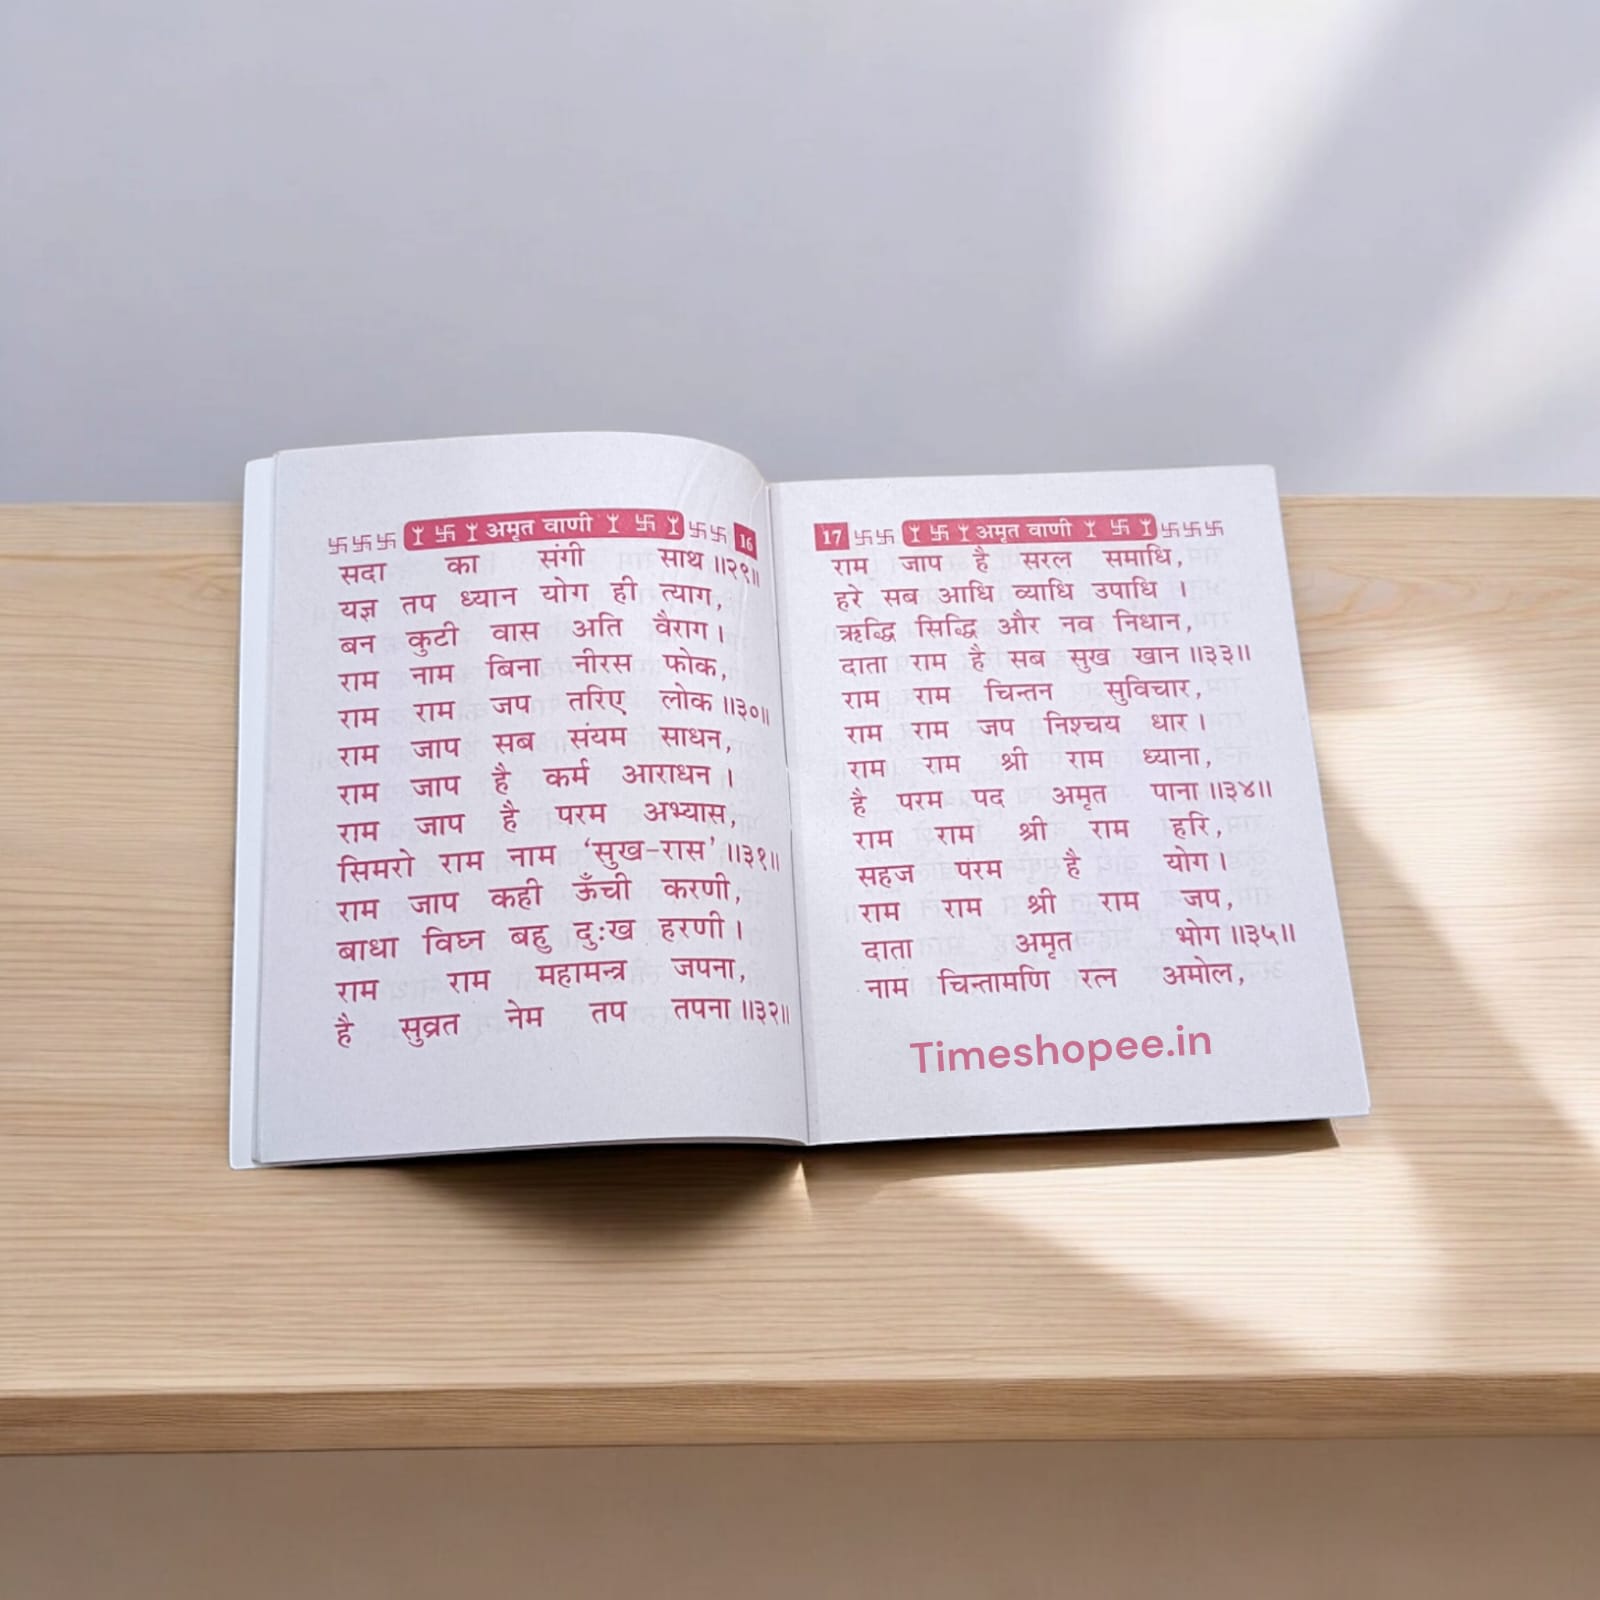 अमृत वाणी 16
सदा का संगी साथ॥२९॥
यज्ञ तप ध्यान योग ही त्याग,
बन कुटी वास अति वैराग।
राम नाम बिना नीरस फोक,
राम राम जप तरिए लोक॥३०॥
राम जाप सब संयम साधन,
राम जाप है कर्म आराधन।
राम जाप है परम अभ्यास,
सिमरो राम नाम ‘सुख-रास’॥३१॥
राम जाप कही ऊँची करणी,
बाधा विघ्न बहु दुःख हरणी।
राम राम महामन्त्र जपना,
है सुव्रत नेम तप तपना॥३२॥
17 अमृत वाणी
राम जाप है सरल समाधि,
हरे सब आधि व्याधि उपाधि।
ऋद्धि सिद्धि और नव निधान,
दाता राम है सब सुख खान॥३३॥
राम राम चिन्तन सुविचार,
राम राम जप निश्चय धार।
राम राम श्री राम ध्याना,
है परम पद अमृत पाना॥३४॥
राम राम श्री राम हरि,
सहज परम है योग।
राम राम श्री राम जप,
दाता अमृत भोग॥३५॥
नाम चिन्तामणि रत्न अमोल,
Timeshopee.in